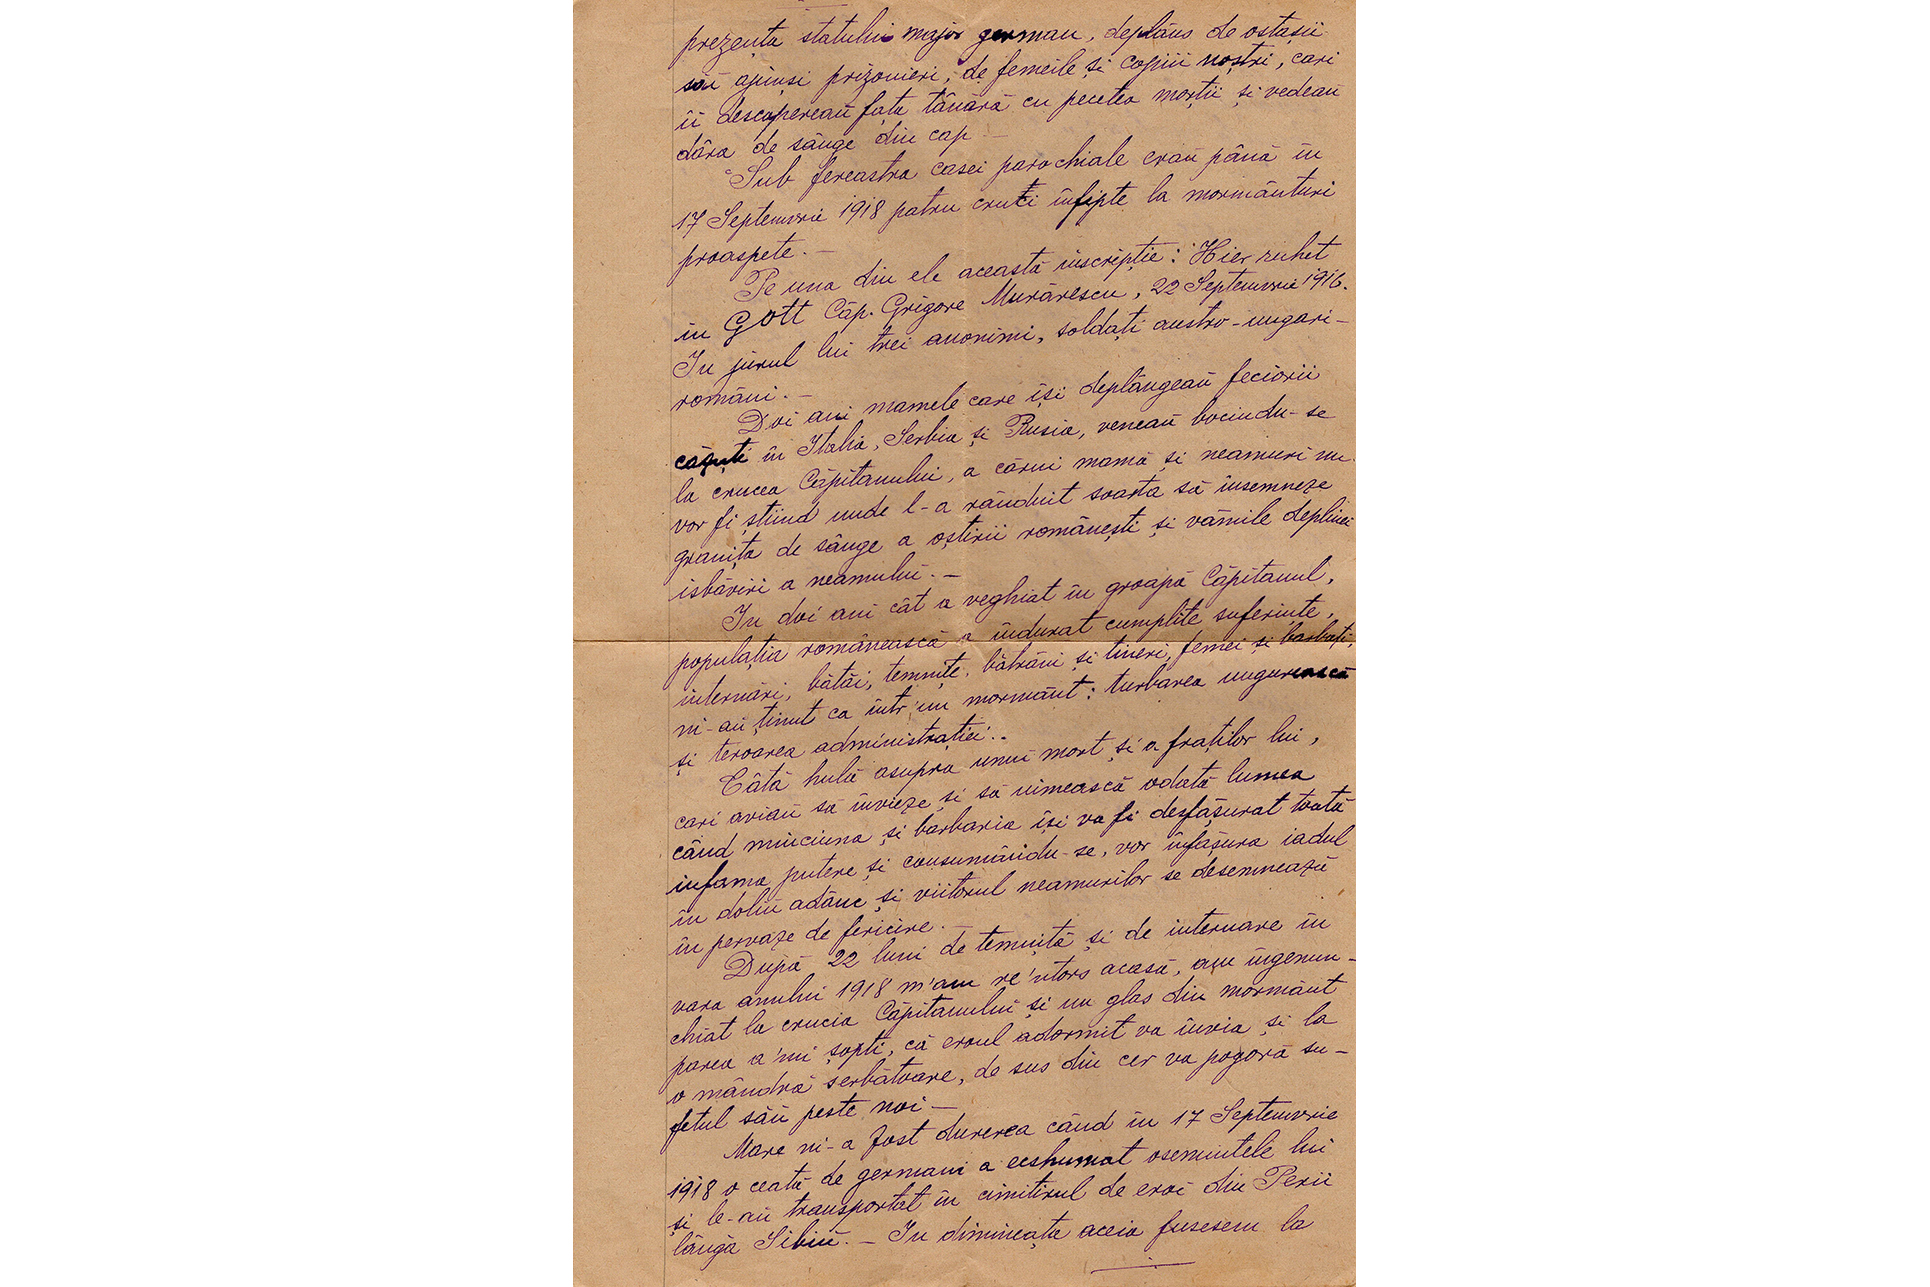 prezența statului major german, deplâns de ostașii
săi ajunși prizonieri, de femeile și copiii noștri, cari
îi descopereau fața tânără cu pecetea morții și vedeau
dâra de sânge din cap —
Sub fereastra casei parochiale erau până în
17 Septemvrie 1918 patru cruci înfipte la mormânturi
proaspete. —
Pe una din ele această inscripție: Hier ruhet
in Gott Căp. Grigore Murărescu, 22 Septemvrie 1916.
In jurul lui trei anonimi, soldați austro-ungari-
români. —
Doi ani mamele care își deplângeau feciorii
căzuți în Italia, Serbia și Rusia, veneau bocindu-se
la crucea Căpitanului, a cărui mamă și neamuri nu
vor fi știind unde l-a rânduit soarta să însemneze
granița de sânge a oștirii românești și vămile deplinei
isbăviri a neamului. —
In doi ani cât a veghiat în groapă Căpitanul,
populația românească a îndurat cumplite suferințe,
internări, bătăi, temnițe, bătrâni și tineri, femei și barbați,
ni-au ținut ca într'un mormânt: turbarea ungurească
și teroarea administrației..
Câtă hulă asupra unui mort și a fraților lui,
cari aviau să învieze și să uimească odată lumea
când minciuna și barbaria își va fi desfășurat toată
infama putere și consumându-se, vor înfășura iadul
în doliu adânc și viitorul neamurilor se desemnează
în pervaze de fericire. —
După 22 luni de temniță și de internare în
vara anului 1918 m'am re'ntors acasă, am îngenun-
chiat la crucia Căpitanului și un glas din mormânt
parea a'mi șopti, că eroul adormit va învia și la
o mândră serbătoare, de sus din cer va pogorâ su-
fetul său peste noi —
Mare ni-a fost durerea când în 17 Septemvrie
1918 o ceată de germani a ecshumat osemintele lui
și le-au transportat în cimitirul de eroi din
lângă Sibiu. — In dimineața aceia fusesem la